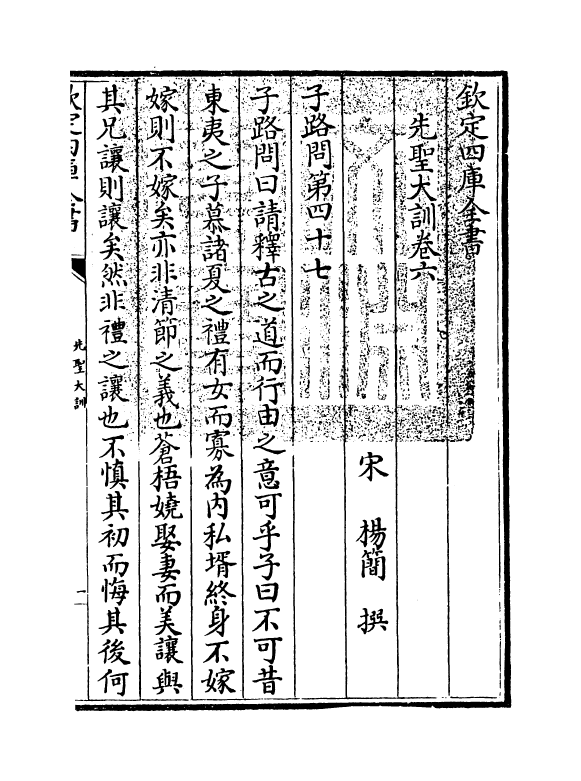 欽定四庫全書
先聖大訓卷六
宋 楊簡 撰
子路問第四十七
子路問曰請釋古之道而行由之意可乎子曰不可昔
東夷之子慕諸夏之禮有女而寡為內私壻終身不嫁
嫁則不嫁矣亦非清節之義也蒼梧嬈娶妻而美讓與
其兄讓則讓矣然非禮之讓也不慎其初而悔其後何
欽定四庫全書
先聖大訓